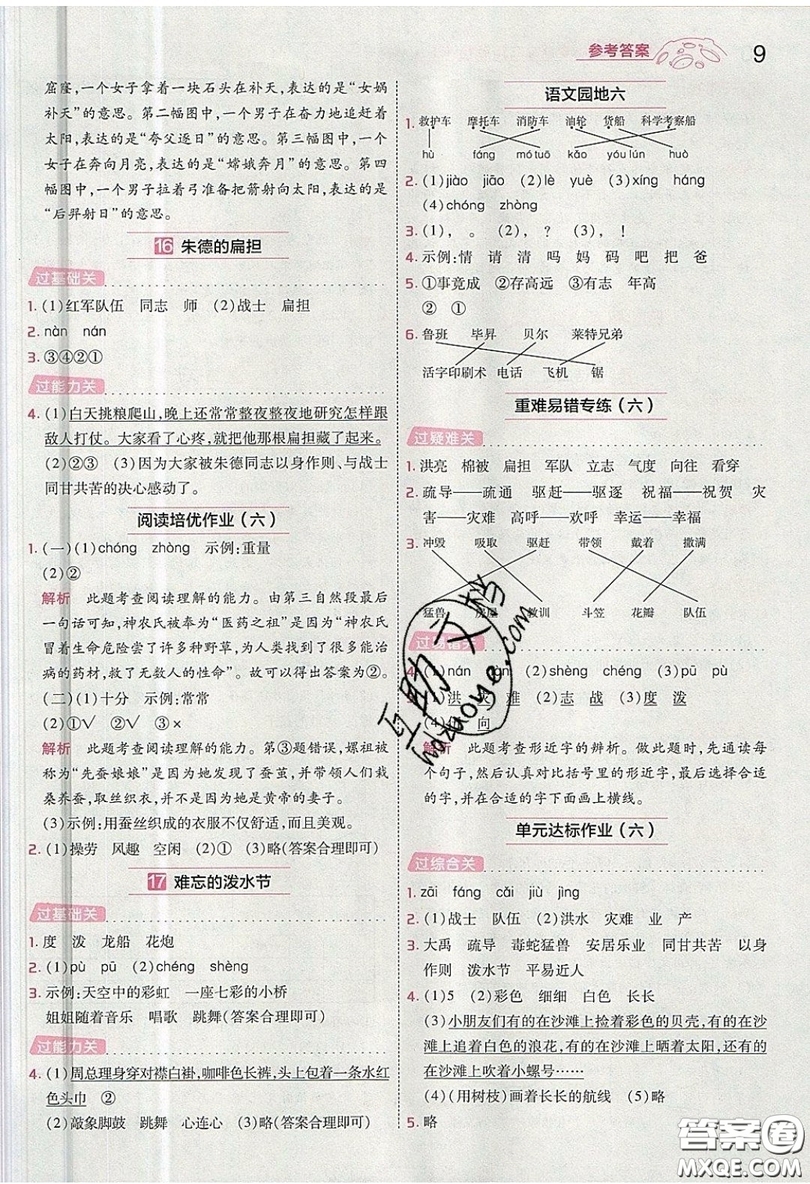 参考答案
9
窟窿，一个女子拿着一块石头在补天，表达的是“女娲
补天”的意思。第二幅图中，一个男子在奋力地追赶着
太阳，表达的是“夸父逐日”的意思。第三幅图中，一个
女子在奔向月亮，表达的是“嫦娥奔月”的意思。第四
幅图中，一个男子拉着弓准备把箭射向太阳，表达的是
“后羿射日”的意思。
16 朱德的扁担
过基础关
1. (1)红军队伍 同志 师 (2)战士 扁担
2. nàn nán
3. ③④②①
过能力关
4. (1)白天挑粮爬山，晚上还常常整夜整夜地研究怎样跟
敌人打仗。大家看了心疼，就把他那根扁担藏了起来。
(2)②③ (3)因为大家被朱德同志以身作则、与战士
同甘共苦的决心感动了。
阅读培优作业（六）
1. (一)(1)chóng zhòng 示例：重量
(2)②
解析 此题考查阅读理解的能力。由第三自然段最后
一句话可知，神农氏被奉为“医药之祖”是因为“神农氏
冒着生命危险尝了许多种野草，为人类找到了很多能治
病的药材，救了无数人的性命”。故可以得出答案为②。
(二)(1)十分 示例：常常
(2)①√ ②√ ③×
解析 此题考查阅读理解的能力。第③题错误，嫘祖被
称为“先蚕娘娘”是因为她发现了蚕茧，并带领人们栽
桑养蚕，取丝织衣，并不是因为她是黄帝的妻子。
(3)示例：用蚕丝织成的衣服不仅舒适，而且美观。
2. (1)操劳 风趣 空闲 (2)① (3)略（答案合理即可）
17 难忘的泼水节
过基础关
1. 度 泼 龙船 花炮
2. (1)pù pū (2)chéng shèng
3. 示例：天空中的彩虹 一座七彩的小桥
姐姐随着音乐 唱歌 跳舞（答案合理即可）
过能力关
4. (1)周总理身穿对襟白褂，咖啡色长裤，头上包着一条水红
色头巾 ②
(2)敲象脚鼓 跳舞 心连心 (3)略（答案合理即可）
语文园地六
1. 救护车 摩托车 消防车 油轮 货船 科学考察船
hù fáng mó tuō kǎo yóu lún huò
2. (1)jiào jiāo (2)lè yuè (3)xíng háng
(4)chóng zhòng
3. (1)， 。 (2)， ？ (3)！
4. 示例：情 请 清 吗 妈 码 吧 把 爸
5. ①事竟成 ②存高远 ③有志 年高
② ①
6. 鲁班 毕昇 贝尔 莱特兄弟
活字印刷术 电话 飞机 锯
重难易错专练（六）
过疑难关
1. 洪亮 棉被 扁担 军队 立志 气度 向往 看穿
2. 疏导——疏通 驱赶——驱逐 祝福——祝贺 灾
害——灾难 高呼——欢呼 幸运——幸福
3. 冲毁 吸取 驱赶 带领 戴着 撒满
猛兽 教训 斗笠 花瓣 队伍
过易错关
4. (1)nán nàn (2)shèng chéng (3)pū pù
5. (1)洪 灾 难 (2)志 战 (3)度 泼
向
解析 此题考查形近字的辨析。做此题时，先通读每
个句子，然后认真对比括号里的形近字，最后选择合适
的字，并在合适的字下面画上横线。
单元达标作业（六）
过综合关
1. zāi fáng cǎi jiù jìng
2. (1)战士 队伍 (2)洪水 灾难 业 产
3. 大禹 疏导 毒蛇猛兽 安居乐业 同甘共苦 以身
作则 泼水节 平易近人
4. (1)5 (2)彩色 细细 白色 长长
(3)小朋友们有的在沙滩上捡着彩色的贝壳，有的在沙
滩上追着白色的浪花，有的在沙滩上晒着太阳，还有的
在沙滩上吹着小螺号……
(4)（用树枝）画着长长的航线 (5)略
5. 略
互助文档
hdzuoye.com
答案圈
MXQE.COM